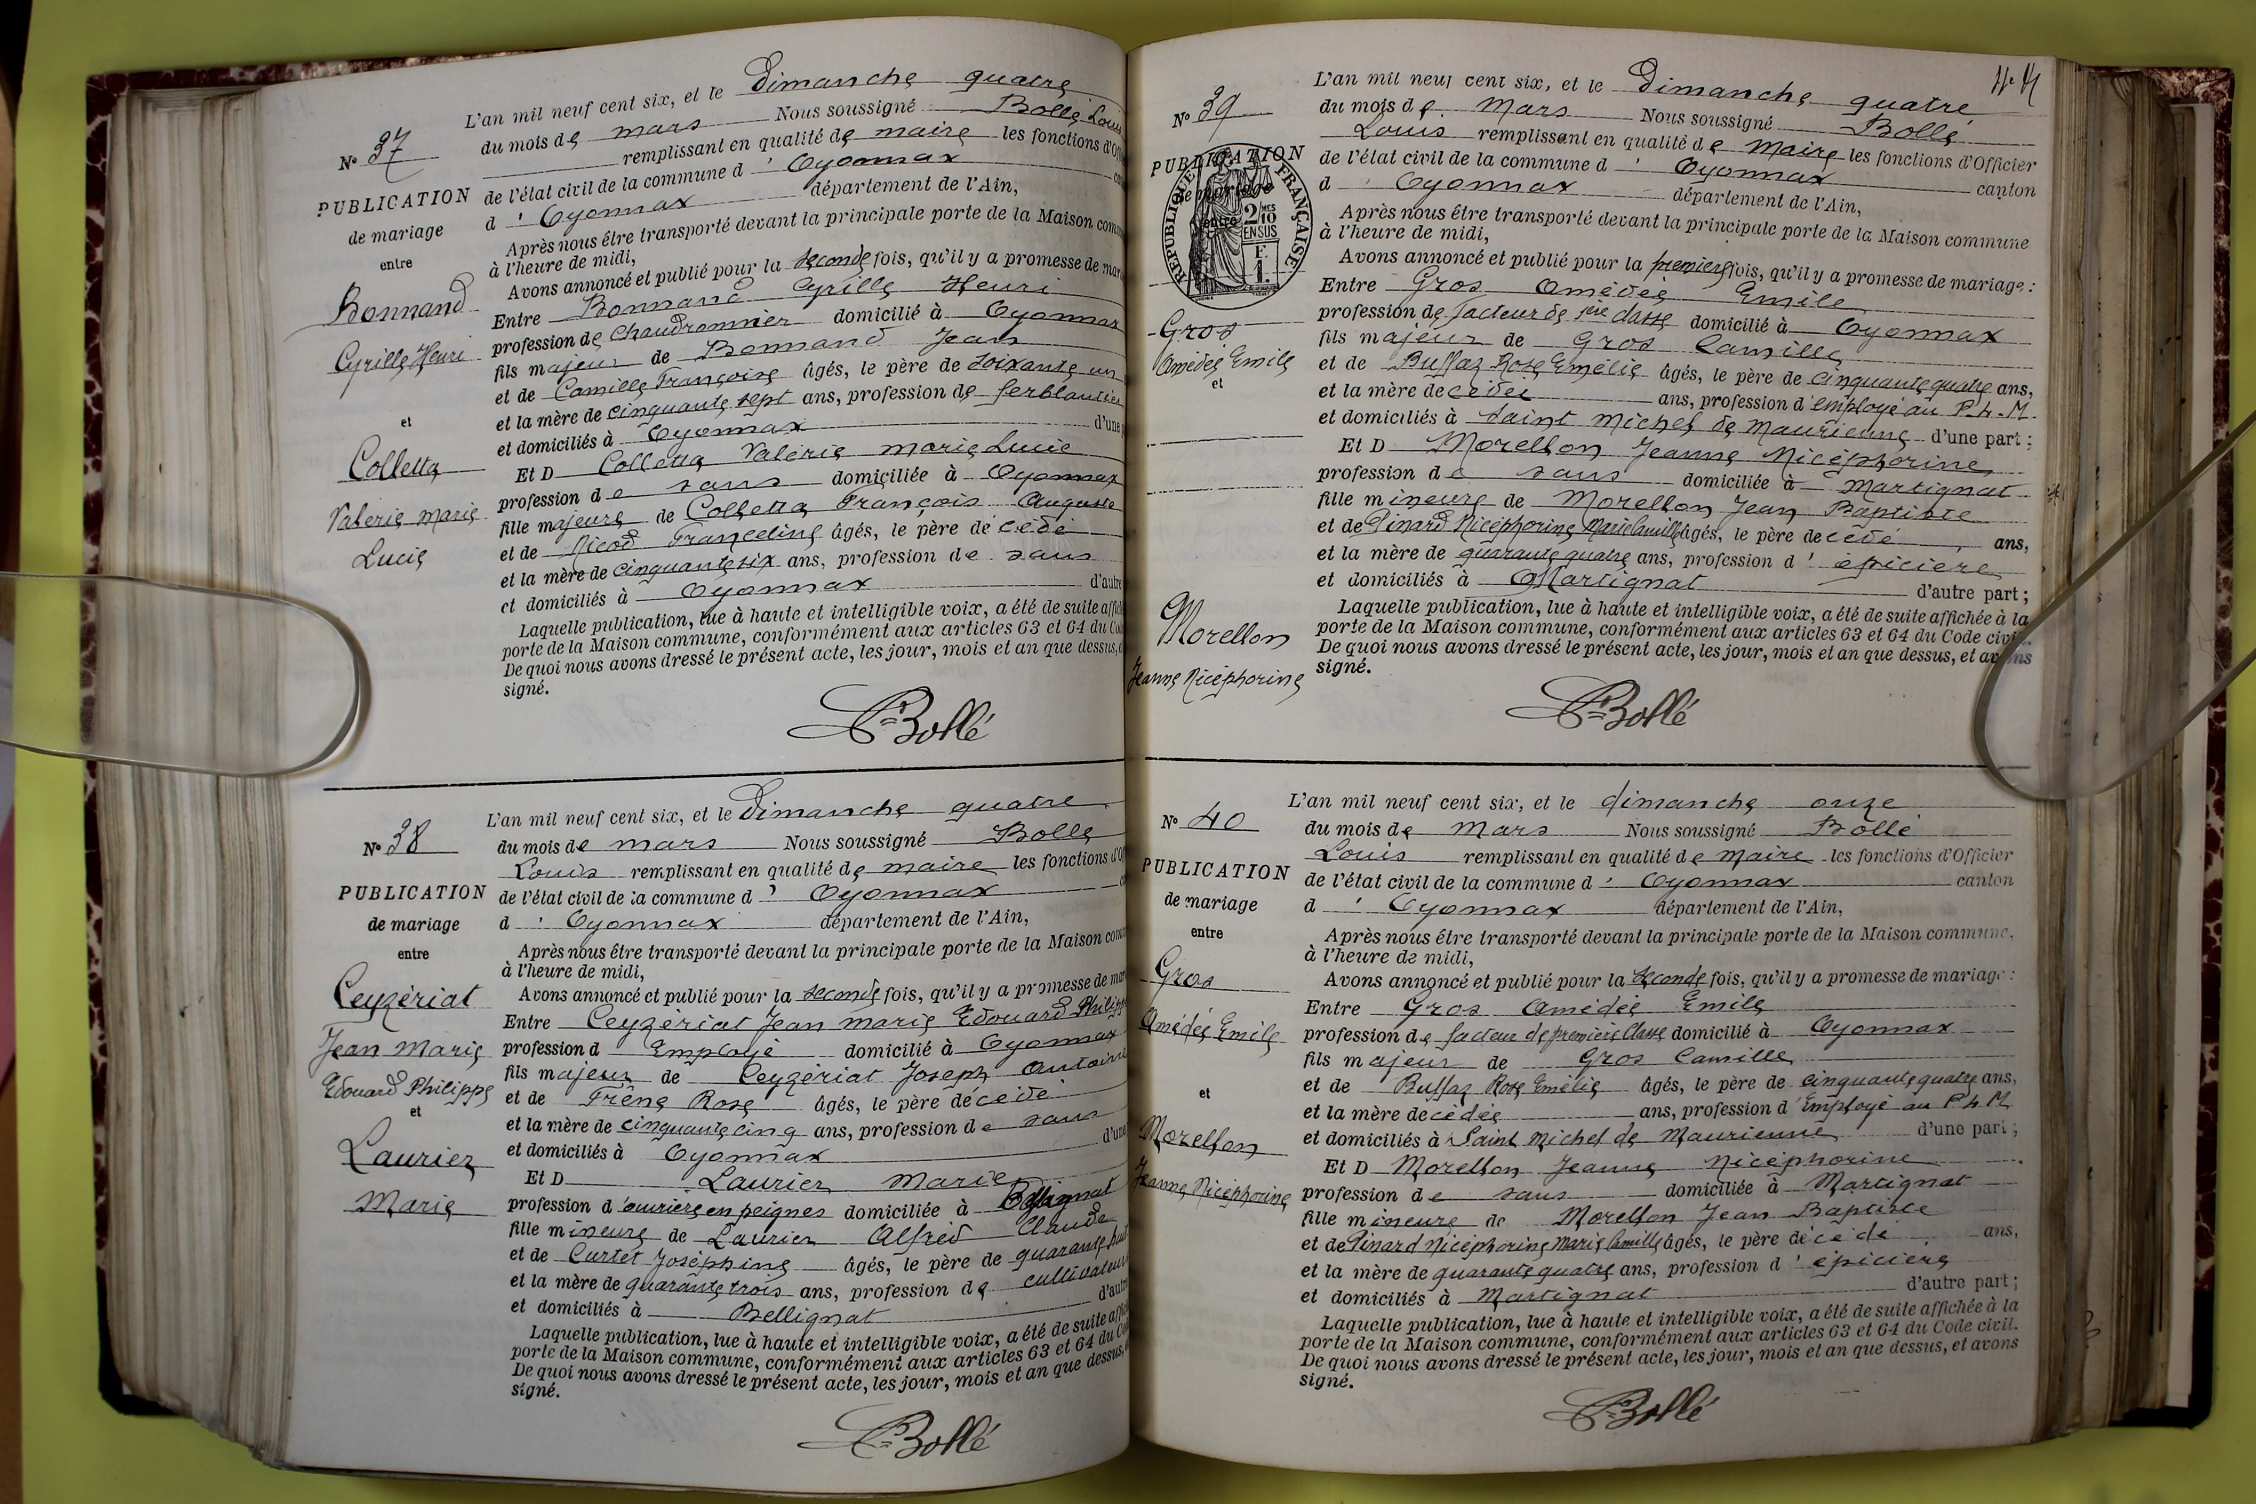 N° 37
PUBLICATION
de mariage
entre
Bonnand
Cyrille Henri
et
Colletta
Valérie Marie
Lucie
L'an mil neuf cent six, et le Dimanche quatre
du mois de mars Nous soussigné Bollé Louis
remplissant en qualité de maire les fonctions d'Off
de l'état civil de la commune d' Oyonnax
d' Oyonnax département de l'Ain,
Après nous être transporté devant la principale porte de la Maison comm
à l'heure de midi,
Avons annoncé et publié pour la seconde fois, qu'il y a promesse de mar
Entre Bonnand Cyrille Henri
profession de Chaudronnier domicilié à Oyonnax
fils majeur de Bonnand Jean
et de Camille Françoise âgés, le père de soixante un
et la mère de cinquante sept ans, profession de ferblantier
et domiciliés à Oyonnax d'une p
Et D Colletta Valérie marie Lucie
profession de sans domiciliée à Oyonnax
fille majeure de Colletta François Auguste
et de Nicod Franceline âgés, le père décédé
et la mère de cinquante six ans, profession de sans
et domiciliés à Oyonnax d'autre
Laquelle publication, lue à haute et intelligible voix, a été de suite affich
porte de la Maison commune, conformément aux articles 63 et 64 du Co
De quoi nous avons dressé le présent acte, les jour, mois et an que dessus,
signé.
Bollé
N° 38
PUBLICATION
de mariage
entre
Ceyzériat
Jean Marie
Edouard Philippe
et
Laurier
Marie
L'an mil neuf cent six, et le Dimanche quatre
du mois de mars Nous soussigné Bollé
Louis remplissant en qualité de maire les fonctions d'Of
de l'état civil de la commune d' Oyonnax
d' Oyonnax département de l'Ain,
Après nous être transporté devant la principale porte de la Maison com
à l'heure de midi,
Avons annoncé et publié pour la seconde fois, qu'il y a promesse de mar
Entre Ceyzériat Jean marie Edouard Philippe
profession d Employé domicilié à Oyonnax
fils majeur de Ceyzériat Joseph Antoine
et de Frêne Rose âgés, le père décédé
et la mère de cinquante cinq ans, profession de sans
et domiciliés à Oyonnax d'une
Et D Laurier Marie
profession d'ouvrière en peignes domiciliée à Bellignat
fille mineure de Laurier Alfred Claude
et de Curtet Joséphine âgés, le père de quarante huit
et la mère de quarante trois ans, profession de cultivateurs
et domiciliés à Bellignat d'autre
Laquelle publication, lue à haute et intelligible voix, a été de suite affich
porte de la Maison commune, conformément aux articles 63 et 64 du Co
De quoi nous avons dressé le présent acte, les jour, mois et an que dessus,
signé.
Bollé
N° 39
PUBLICATION
de mariage
entre
RÉPUBLIQUE FRANÇAISE
2/10 MES
EN SUS
F.
1.
Gros
Amédée Emile
et
Morellon
Jeanne Nicéphorine
L'an mil neuf cent six, et le Dimanche quatre
du mois de Mars Nous soussigné Bollé
Louis remplissant en qualité de Maire les fonctions d'Officier
de l'état civil de la commune d' Oyonnax canton
d' Oyonnax département de l'Ain,
Après nous être transporté devant la principale porte de la Maison commune
à l'heure de midi,
Avons annoncé et publié pour la première fois, qu'il y a promesse de mariage :
Entre Gros Amédée Emile
profession de facteur de 1ère classe domicilié à Oyonnax
fils majeur de Gros Camille
et de Buffaz Rose Emélie âgés, le père de cinquante quatre ans,
et la mère décédée ans, profession d'employé au P.L.M.
et domiciliés à Saint Michel de Maurienne d'une part ;
Et D Morellon Jeanne Nicéphorine
profession de sans domiciliée à Martignat
fille mineure de Morellon Jean Baptiste
et de Pinard Nicéphorine Marie Camille âgés, le père décédé ans,
et la mère de quarante quatre ans, profession d' épicière
et domiciliés à Martignat d'autre part ;
Laquelle publication, lue à haute et intelligible voix, a été de suite affichée à la
porte de la Maison commune, conformément aux articles 63 et 64 du Code civil.
De quoi nous avons dressé le présent acte, les jour, mois et an que dessus, et avons
signé.
Bollé
N° 40
PUBLICATION
de mariage
entre
Gros
Amédée Emile
et
Morellon
Jeanne Nicéphorine
L'an mil neuf cent six, et le dimanche onze
du mois de Mars Nous soussigné Bollé
Louis remplissant en qualité de Maire les fonctions d'Officier
de l'état civil de la commune d' Oyonnax canton
d' Oyonnax département de l'Ain,
Après nous être transporté devant la principale porte de la Maison commune,
à l'heure de midi,
Avons annoncé et publié pour la seconde fois, qu'il y a promesse de mariage :
Entre Gros Amédée Emile
profession de facteur de première classe domicilié à Oyonnax
fils majeur de Gros Camille
et de Buffaz Rose Emélie âgés, le père de cinquante quatre ans,
et la mère décédée ans, profession d'Employé au P.L.M
et domiciliés à Saint Michel de Maurienne d'une part ;
Et D Morellon Jeanne Nicéphorine
profession de sans domiciliée à Martignat
fille mineure de Morellon Jean Baptiste
et de Pinard Nicéphorine Marie Camille âgés, le père décédé ans,
et la mère de quarante quatre ans, profession d' épicière
et domiciliés à Martignat d'autre part ;
Laquelle publication, lue à haute et intelligible voix, a été de suite affichée à la
porte de la Maison commune, conformément aux articles 63 et 64 du Code civil.
De quoi nous avons dressé le présent acte, les jour, mois et an que dessus, et avons
signé.
Bollé